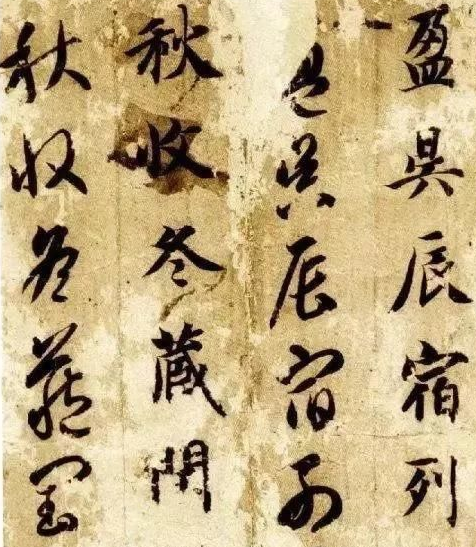 盈昃辰宿列
盈昃辰宿列
秋收冬藏閏
秋收冬藏閏